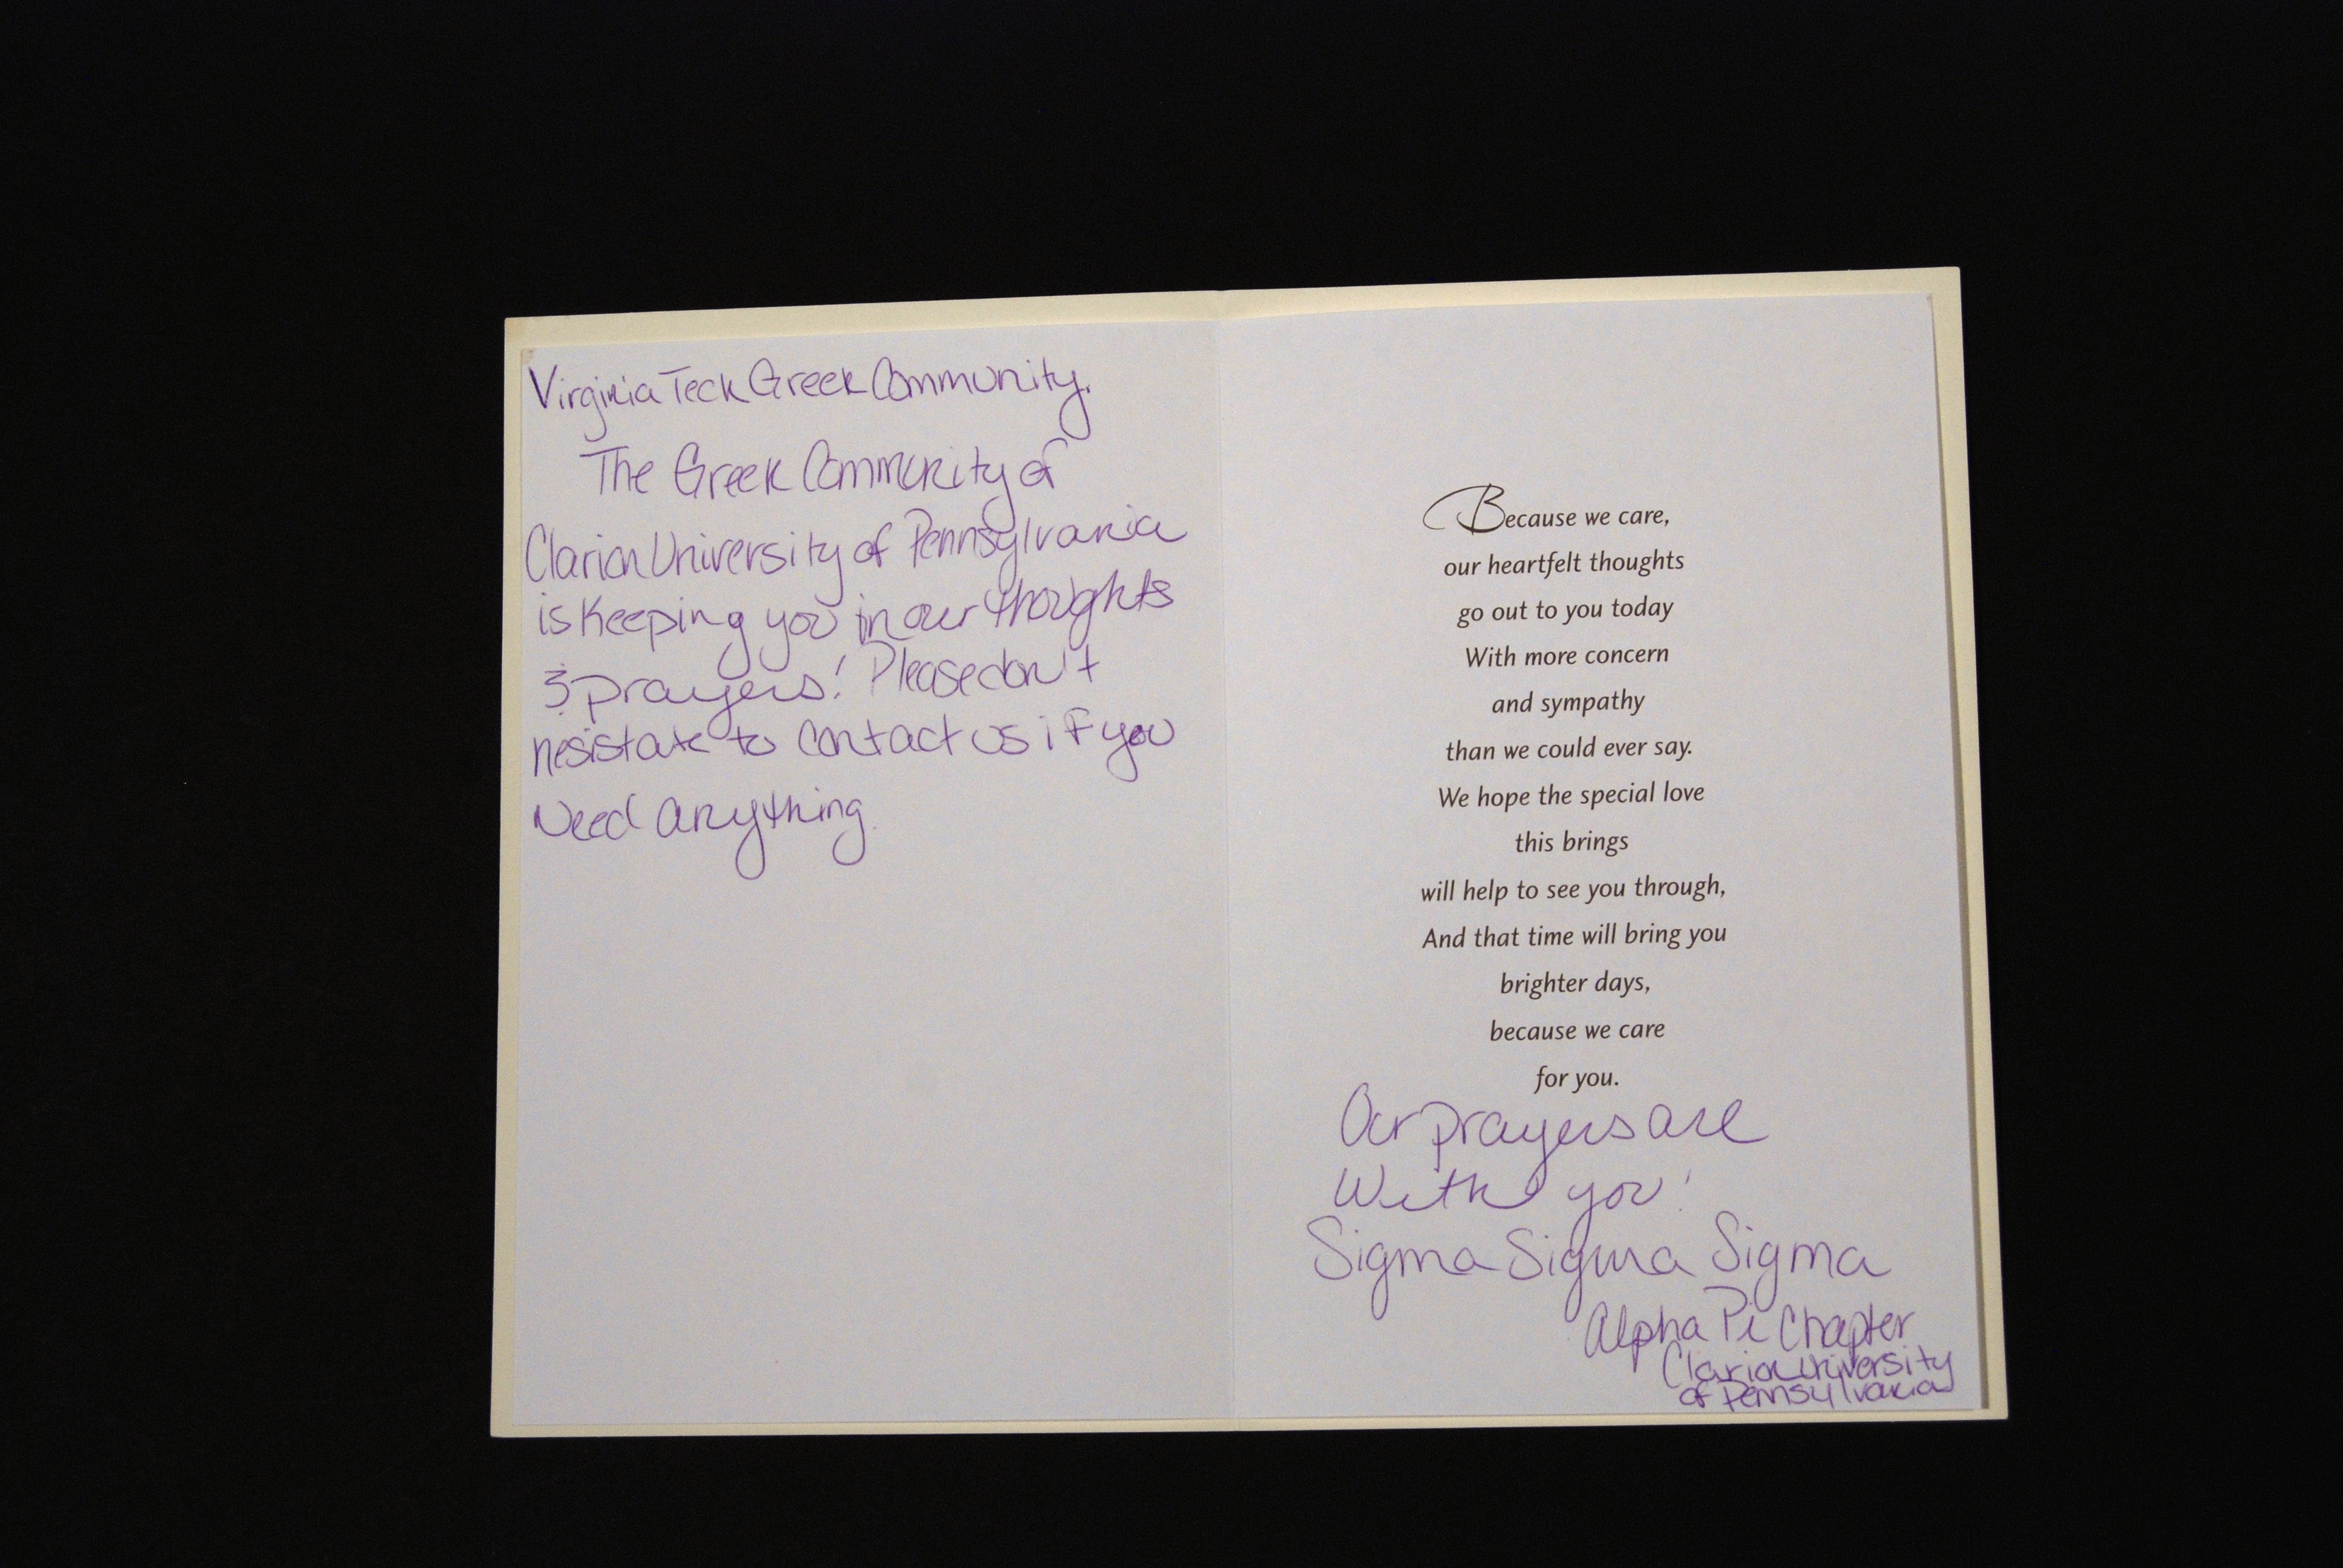 Virginia Tech Greek Community,
The Greek Community of
Clarion University of Pennsylvania
is keeping you in our thoughts
& prayers! Please don't
hesistate to contact us if you
Need anything.
Because we care,
our heartfelt thoughts
go out to you today
With more concern
and sympathy
than we could ever say.
We hope the special love
this brings
will help to see you through,
And that time will bring you
brighter days,
because we care
for you.
Our prayers are
With you!
Sigma Sigma Sigma
Alpha Pi Chapter
Clarion University
of Pennsylvania